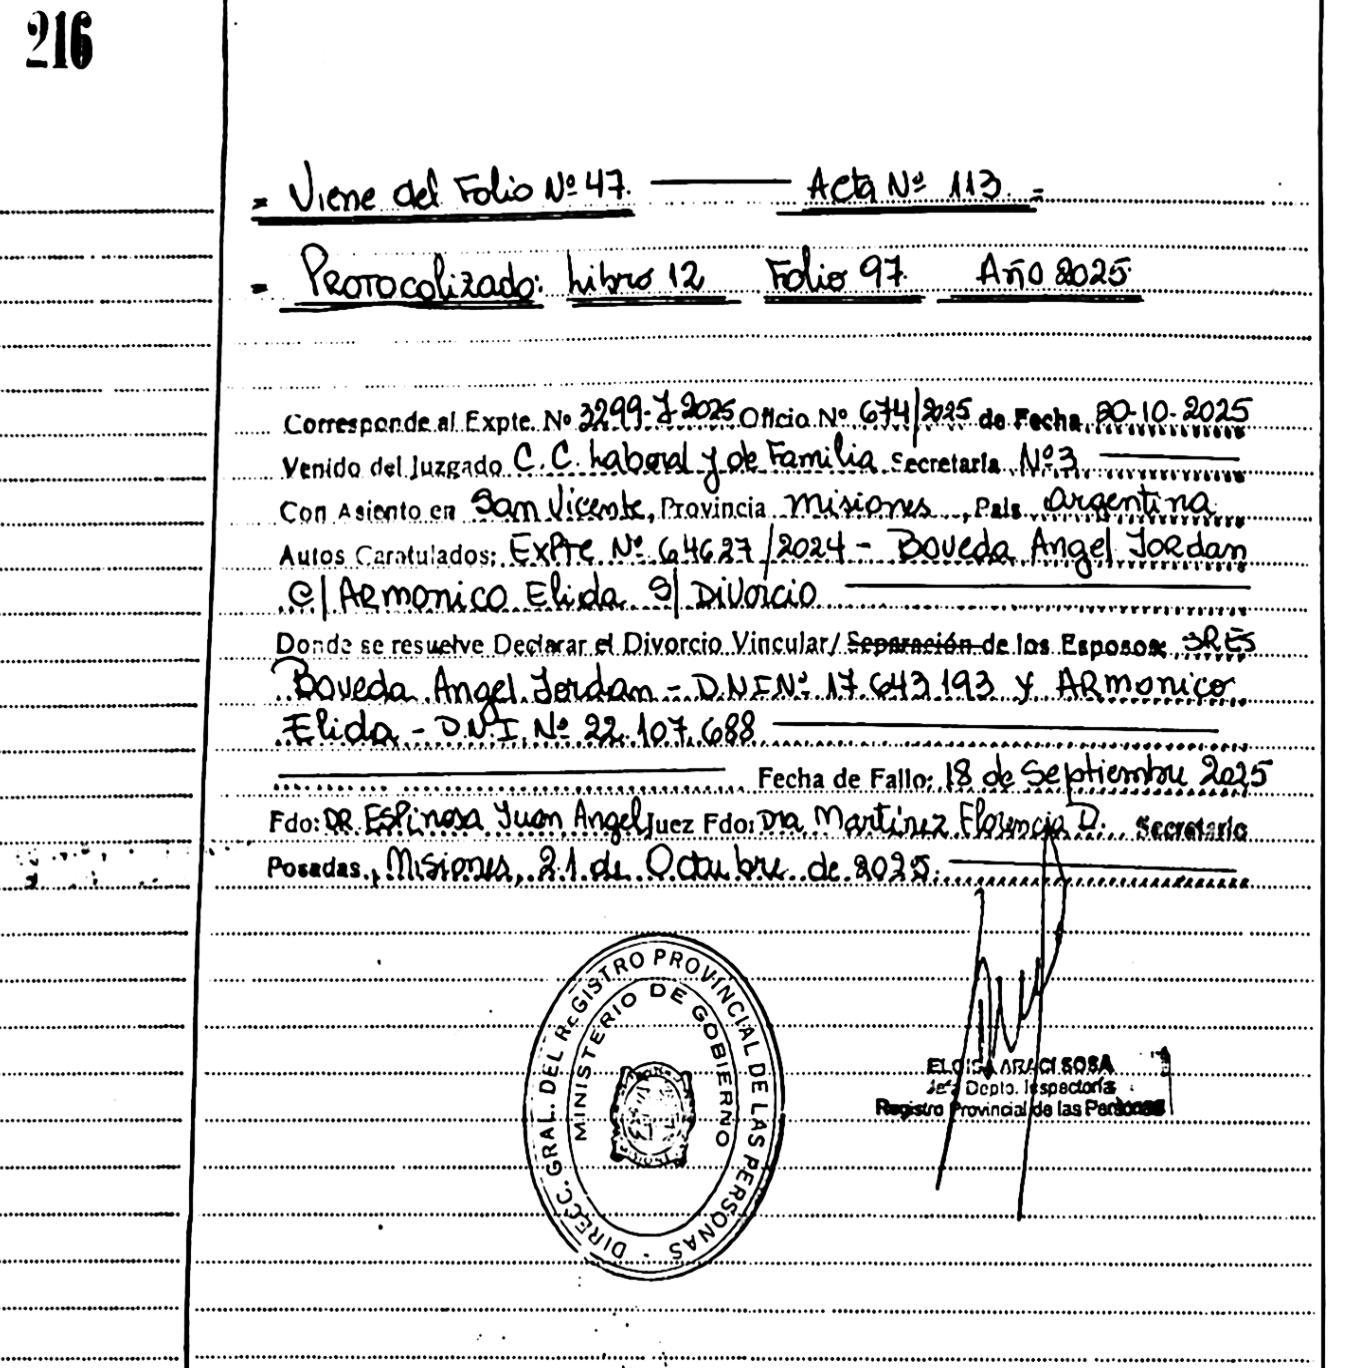 216
= Viene del Folio Nº 47. Acta Nº 113. =
= Protocolizado: Libro 12 Folio 97. Año 2025.
Corresponde al Expte. Nº 3299-J-2025 Oficio Nº 674/2025 de Fecha 20-10-2025
Venido del Juzgado C.C. Laboral y de Familia Secretaría Nº3
Con Asiento en San Vicente, Provincia Misiones, País Argentina
Autos Caratulados: Expte Nº 64627/2024 - Boveda Angel Jordan
C/ Armonico Elida S/ Divorcio
Donde se resuelve Declarar el Divorcio Vincular/ Separación de los Esposos SRES
Boveda Angel Jordan - D.N.I Nº 17.643.193 y Armonico
Elida - D.N.I. Nº 22.107.688
Fecha de Fallo: 18 de Septiembre 2025
Fdo: DR. Espinosa Juan Angel Juez Fdo: Dra Martinez Florencia D. Secretario
Posadas, Misiones, 21 de Octubre de 2025.
DIRECC. GRAL. DEL REGISTRO PROVINCIAL DE LAS PERSONAS -
MINISTERIO DE GOBIERNO
ELOISA ARACI SOSA
Jefa Depto. Inspectoría
Registro Provincial de las Personas